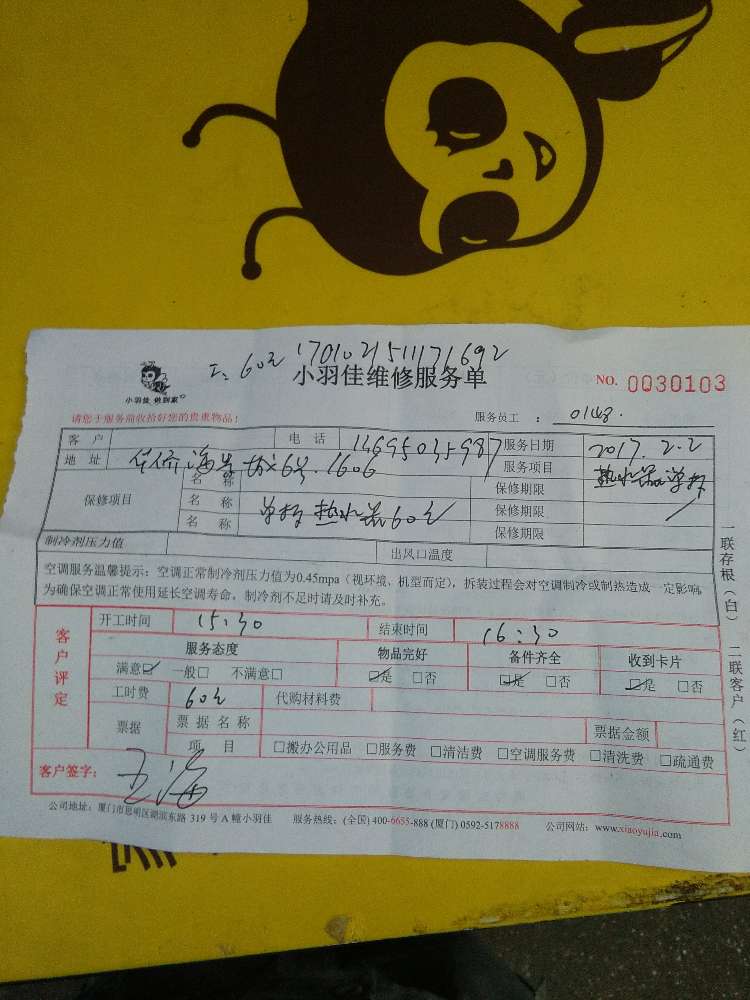 工：60元 1701021511171692
小羽佳维修服务单
NO. 0030103
小羽佳 做到家
请您于服务前收拾好您的贵重物品！
服务员工 ： 0148.
客 户 电 话 14695035987 服务日期 2017.2.2
地 址 华侨海景城6号.1606 服务项目 热水器
保修项目 名 称 保修期限
名 称 热水器60元 保修期限
名 称 保修期限
制冷剂压力值 出风口温度
空调服务温馨提示：空调正常制冷剂压力值为0.45mpa（视环境、机型而定），拆装过程会对空调制冷或制热造成一定影响，
为确保空调正常使用延长空调寿命，制冷剂不足时请及时补充。
客户评定
开工时间 15:30 结束时间 16:30
服务态度 物品完好 备件齐全 收到卡片
满意☑ 一般□ 不满意□ ☑是 □否 ☑是 □否 ☑是 □否
工时费 60元 代购材料费
票据 票 据 名 称 票据金额
项 目 □搬办公用品 □服务费 □清洁费 □空调服务费 □清洗费 □疏通费
客户签字： 王海
公司地址：厦门市思明区湖滨东路 319 号 A 幢小羽佳 服务热线：(全国) 400-6655-888 (厦门) 0592-5178888 公司网站：www.xiaoyujia.com
一联存根（白） 二联客户（红）